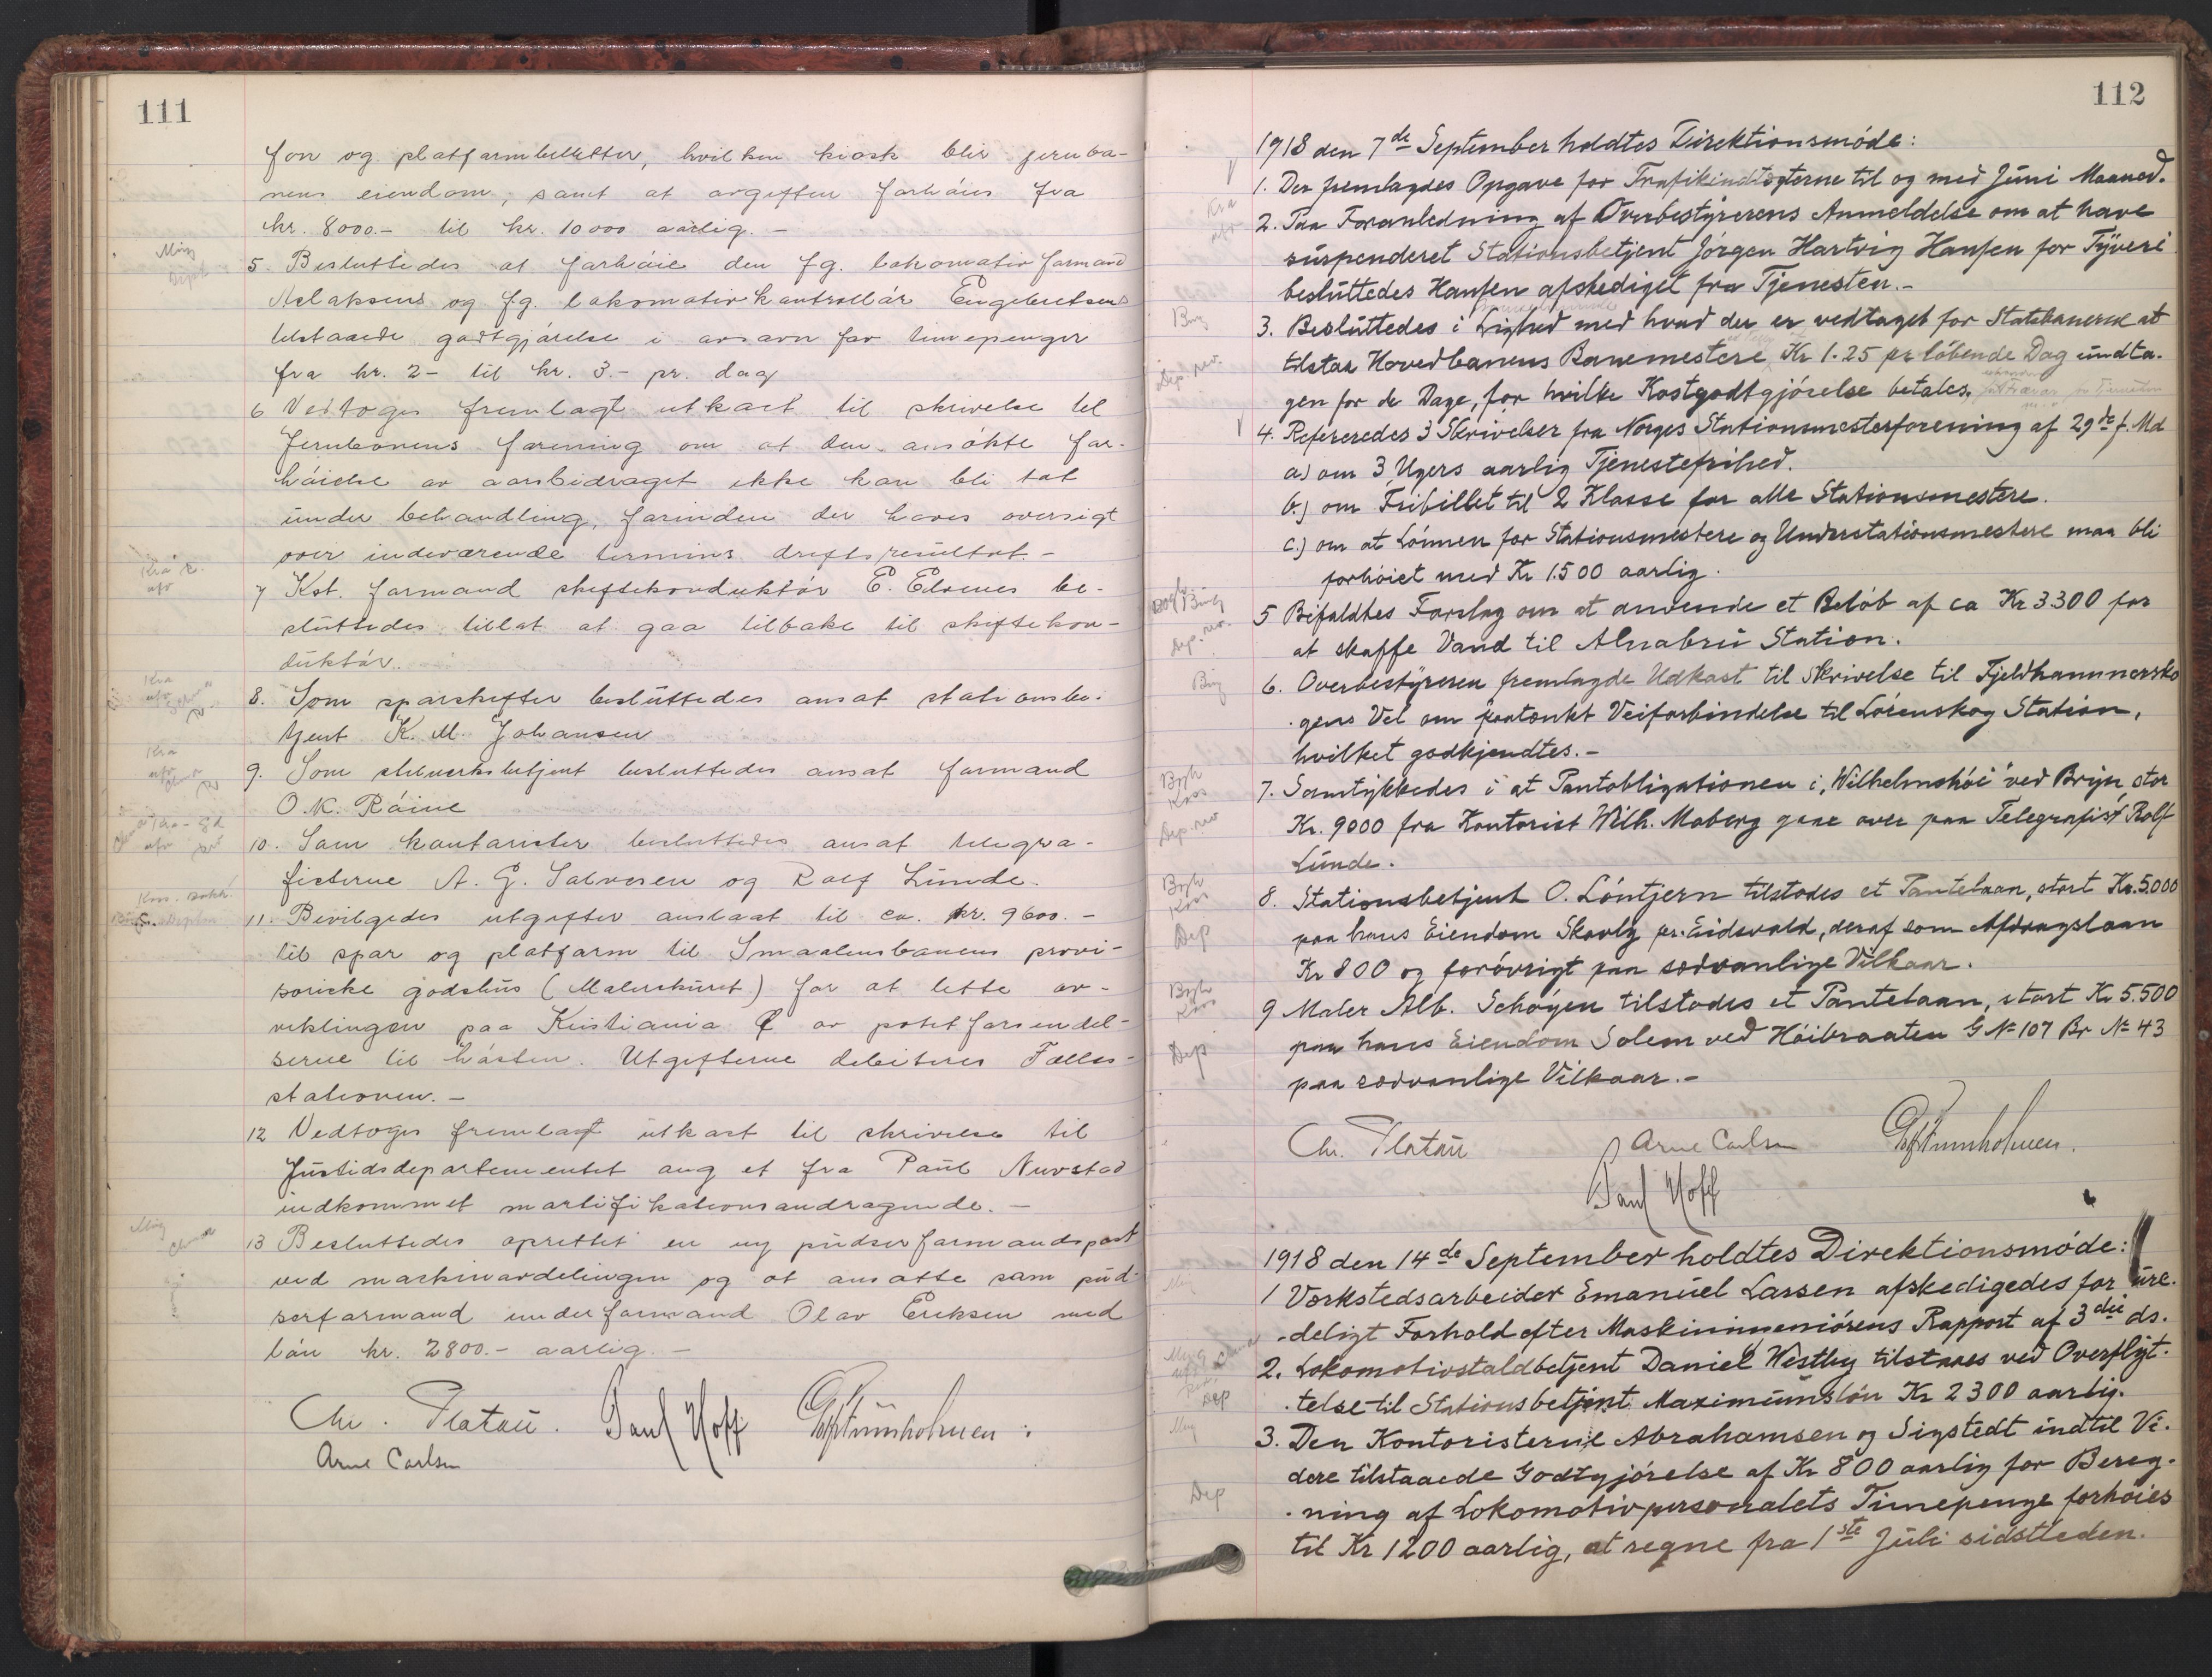 111
fon og platformbilletter, hvilken kiosk blir jernba-
nens eiendom, samt at avgiften forhöies fra
kr. 8000.- til kr. 10 000 aarlig. -
5. Besluttedes at forhöie den fg. lokomotivformand
Aslaksens og fg. lokomotivkontrollör Engebretsens
tilstaaede godtgjörelse i avsavn for timepenger
fra kr. 2- til kr. 3.- pr. dag
6 Vedtoges fremlagt utkast til skrivelse til
Jernbanens forening om at den ansökte for-
höielse av aarsbidraget ikke kan bli tat
under behandling, forinden der haves oversigt
over indeværende termins driftsresultat -
7 Kst. formand skiftekonduktör E. Elvenes be-
sluttedes tillat at gaa tilbake til skiftekon-
duktör.
8. Som sporskifter besluttedes ansat stationsbe-
tjent K. M. Johansen
9. Som stilverksbetjent besluttedes ansat formand
O. K. Röine
10. Som kontorister besluttedes ansat telegra-
fisterne A. G. Salvesen og Rolf Lunde.
11. Bevilgedes utgifter anslaat til ca. kr. 9600. -
til spor og platform til Smaalensbanens provi-
soriske godshus (Malerskuret) for at lette av-
viklingen paa Kristiania Ø av potetforsendel-
serne til hösten. Utgifterne debiteres Fælles-
stationen. -
12 Vedtoges fremlagt utkast til skrivelse til
Justidsdepartementet ang et fra Paul Nuvstad
indkommet mortifikationsandragende. -
13 Besluttedes oprettet en ny pudserformandspost
ved maskinavdelingen og at ansætte som pud-
serformand underformand Olav Eriksen med
lön kr. 2800.- aarlig. -
Chr. Platou. Paul Hoff
Arne Carlsen
112
1918 den 7de September holdtes Direktionsmöde:
1. Der fremlagdes Opgave for Trafikindtægterne til og med Juni Maaned.
2. Paa Foranledning af Overbestyrerens Anmeldelse om at have
suspenderet Stationsbetjent Jörgen Hartvig Hansen for Tyveri
besluttedes Hansen afskediget fra Tjenesten.-
3. Besluttedes i Lighed med hvad der er vedtaget for Statsbanerne at
tilstaa Hovedbanens Banemestere Kr 1.25 pr löbende Dag undta-
gen for de Dage, for hvilke Kostgodtgjörelse betales.
4. Refereredes 3 Skrivelser fra Norges Stationsmesterforening af 29de f. Md
a) om 3 Ugers aarlig Tjenestefrihed.
b.) om Fribillet til 2 Klasse for alle Stationsmestere.
c.) om at Lönnen for Stationsmestere og Understationsmestere maa bli
forhöiet med Kr 1.500 aarlig.
5 Bifaldtes Forslag om at anvende et Belöb af ca Kr 3300 for
at skaffe Vand til Alnabru Station.
6. Overbestyreren fremlagde Udkast til Skrivelse til Fjeldhammersko
gens Vel om paatænkt Veiforbindelse til Lörenskog Station,
hvilket godkjendtes.-
7. Samtykkedes i at Pantobligationen i „Wilhelmshöi" ved Bryn, stor
Kr. 9000 fra Kontorist Wilh. Moberg gaar over paa Telegrafist Rolf
Lunde.
8. Stationsbetjent O. Löntjern tilstodes et Pantelaan, stort Kr. 5.000
paa hans Eiendom Skovly pr. Eidsvold, deraf som Afdragslaan
Kr 800 og forövrigt paa sædvanlige Vilkaar.
9 Maler Alb. Schöyen tilstodes et Pantelaan, stort Kr 5.500
paa hans Eiendom Solem ved Höibraaten G № 107 Br № 43
paa sædvanlige Vilkaar.-
Chr. Platou Arne Carlsen
Paul Hoff
1918 den 14de September holdtes Direktionsmöde:
1 Værkstedsarbeider Emanuel Larsen afskedigedes for ure-
deligt Forhold efter Maskiningeniörens Rapport af 3die ds.
2. Lokomotivstaldbetjent Daniel Westby tilstaaes ved Overflyt-
telse til Stationsbetjent Maximumslön Kr 2300 aarlig.
3. Den Kontoristerne Abrahamsen og Sigstedt indtil Vi-
dere tilstaaede Godtgjörelse af Kr 800 aarlig for Bereg-
ning af Lokomotivpersonalets Timepenge forhöies
til Kr 1200 aarlig, at regne fra 1ste Juli sidstleden.